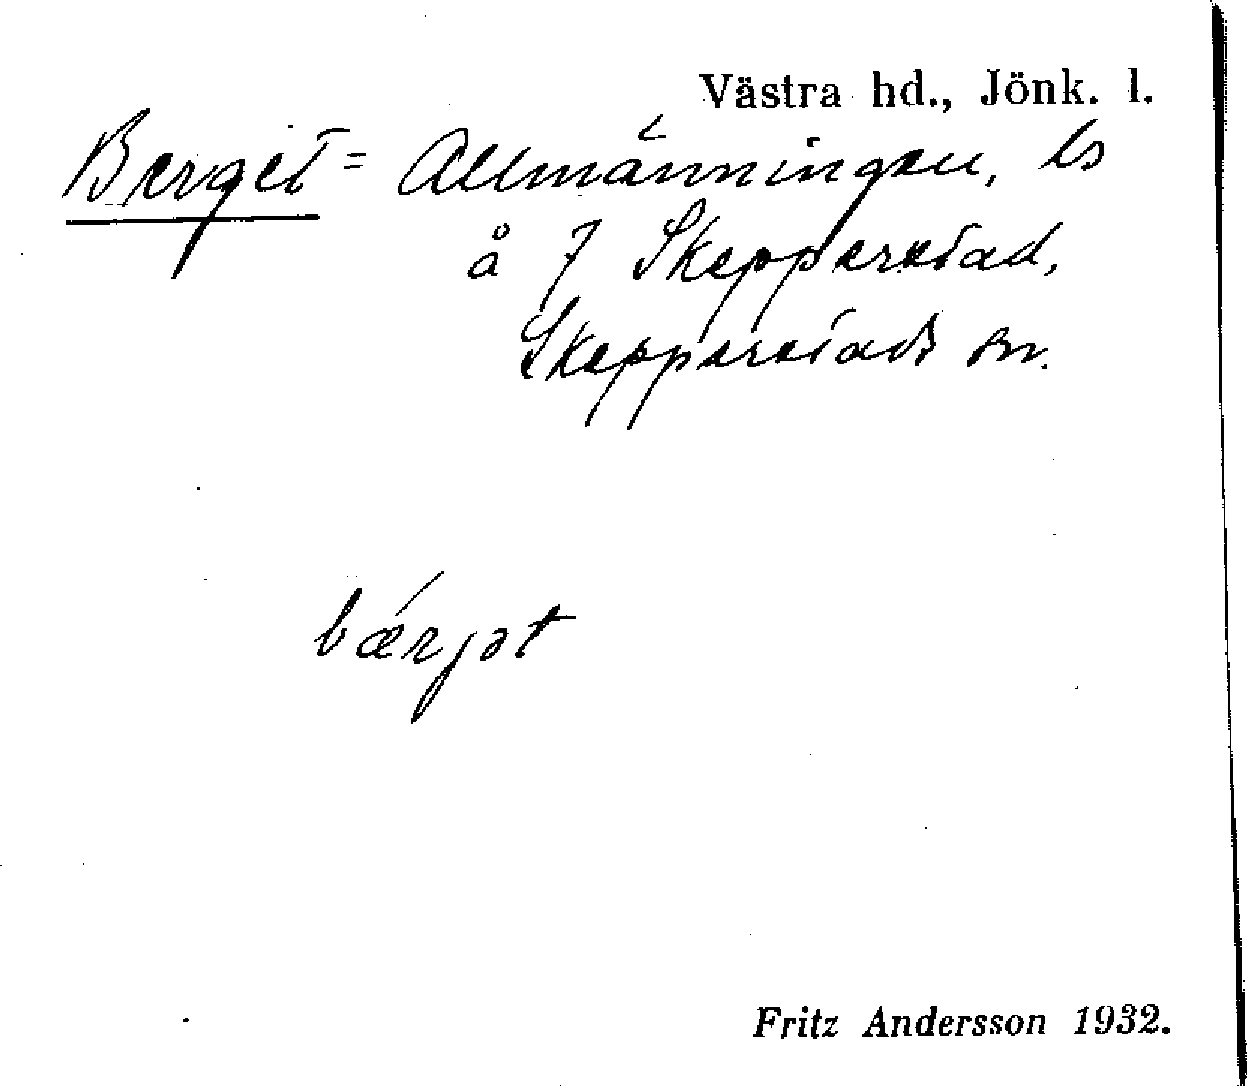 Västra hd., Jönk. l.
Berget = Allmänningen, ls
å 7 Skepperstad,
Skepperstads sn.
bærjət
Fritz Andersson 1932.